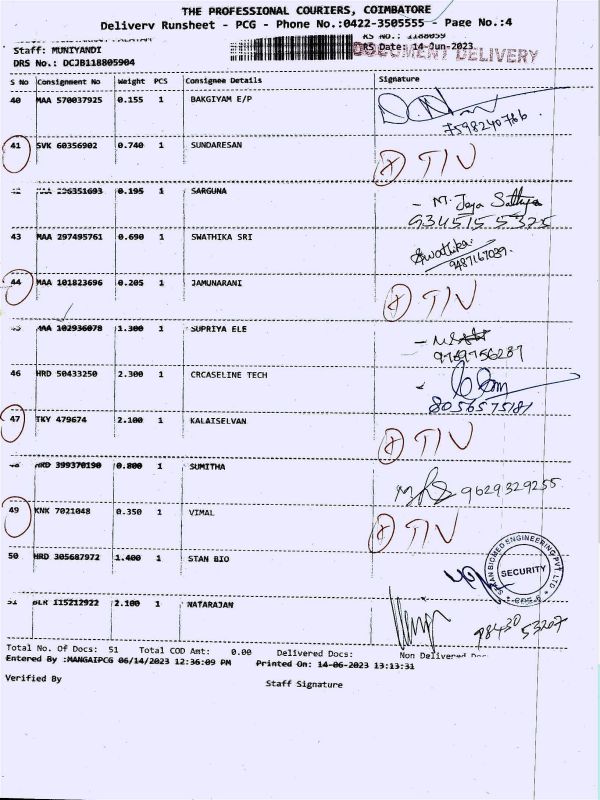 THE PROFESSIONAL COURIERS, COIMBATORE
Delivery Runsheet - PCG - Phone No.:0422-3505555 - Page No.:4
Staff: MUNIYANDI
RS No.: 1188059
RS Date: 14-Jun-2023
DOCUMENT DELIVERY
DRS No.: DCJB118805904
S No Consignment No Weight PCS Consignee Details Signature
40 MAA 570037925 0.155 1 BAKGIYAM E/P
7598240766
41 SVK 60356902 0.740 1 SUNDARESAN
X TIV
42 MAA 296351693 0.195 1 SARGUNA
- M. Jaya Sathya
9345155325
43 MAA 297495761 0.690 1 SWATHIKA SRI
Swathika
9487167039.
44 MAA 101823696 0.205 1 JAMUNARANI
X TIV
45 MAA 102936078 1.300 1 SUPRIYA ELE
9789756287
46 HRD 50433250 2.300 1 CRCASELINE TECH
8056575181
47 TKY 479674 2.100 1 KALAISELVAN
X TIV
48 HRD 399370190 0.800 1 SUMITHA
9629329255
49 KNK 7021048 0.350 1 VIMAL
X TIV
50 HRD 305687972 1.400 1 STAN BIO
ENGINEERING PVT LTD
SECURITY
51 BLR 115212922 2.100 1 NATARAJAN
98430 53207
Total No. Of Docs: 51 Total COD Amt: 0.00 Delivered Docs: Non Delivered Doc
Entered By :MANGAIPCG 06/14/2023 12:36:09 PM Printed On: 14-06-2023 13:13:31
Verified By Staff Signature